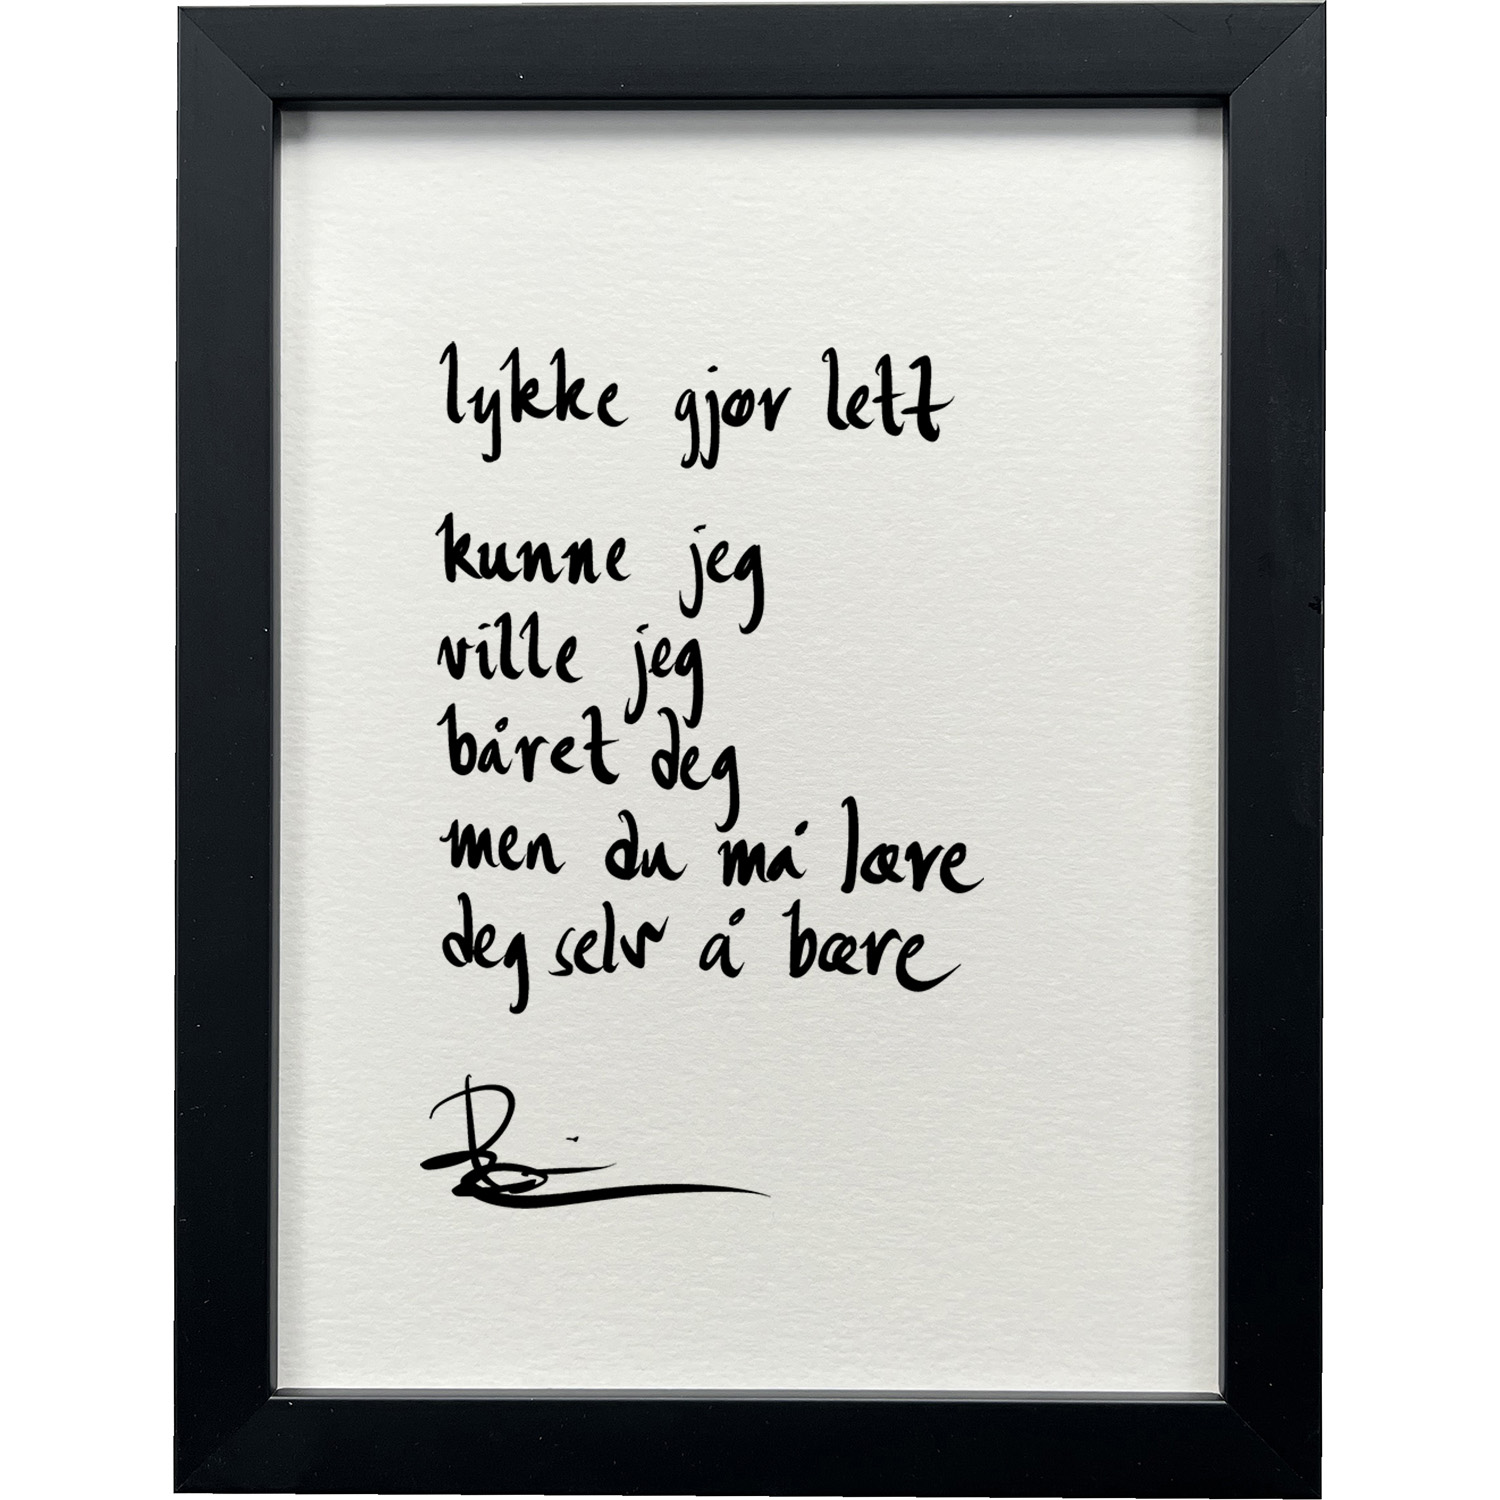 lykke gjør lett
kunne jeg
ville jeg
båret deg
men du må lære
deg selv å bære